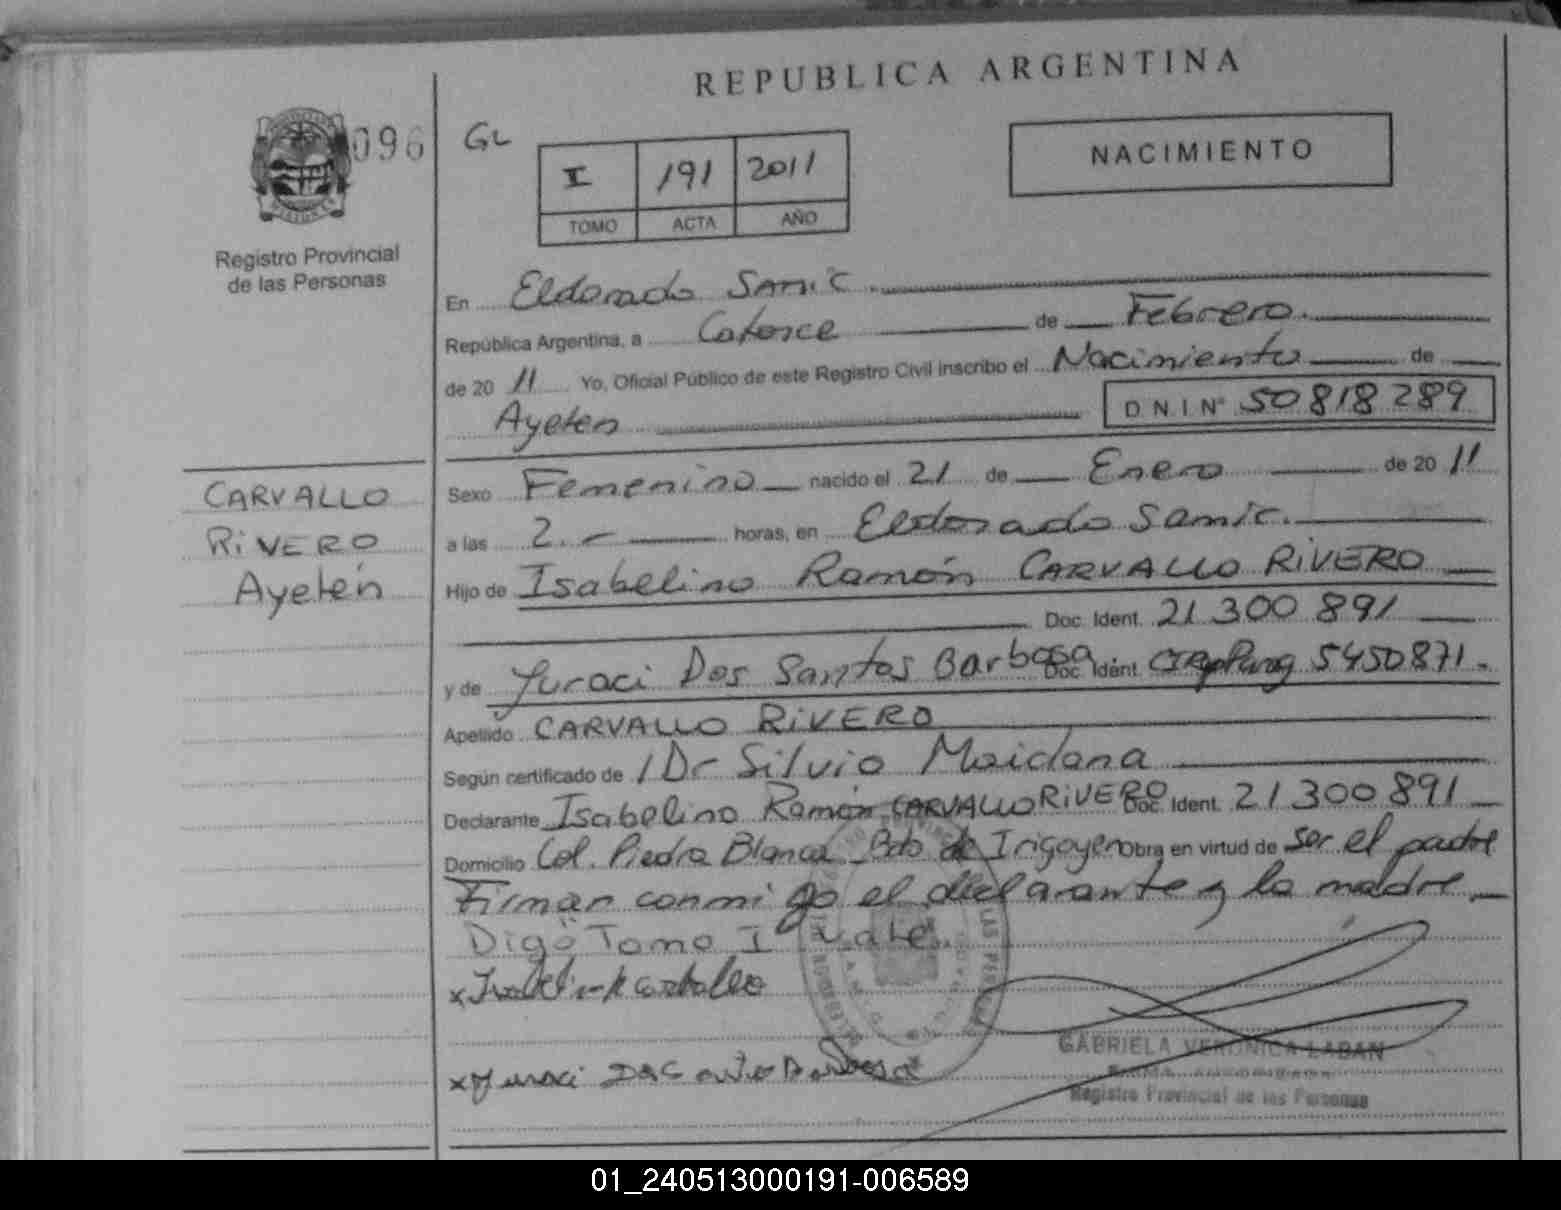 REPUBLICA ARGENTINA
096
GL
I 191 2011
TOMO ACTA AÑO
NACIMIENTO
Registro Provincial
de las Personas
En Eldorado Samic
República Argentina, a Catorce de Febrero.
de 20 11 Yo, Oficial Público de este Registro Civil inscribo el Nacimiento de
Ayelen D.N.I. Nº 50 818 289
CARVALLO
RIVERO
Ayelén
Sexo Femenino nacido el 21 de Enero de 20 11
a las 2.- horas, en Eldorado Samic.
Hijo de Isabelino Ramón CARVALLO RIVERO
Doc. Ident. 21 300 891
y de Juraci Dos Santos Barbosa Doc. Ident. 5450871.
Apellido CARVALLO RIVERO
Según certificado de /Dr Silvio Maidana
Declarante Isabelino Ramón CARVALLO RIVERO Doc. Ident. 21 300 891
Domicilio Col. Piedra Blanca Bdo de Irigoyen obra en virtud de ser el padre
Firman conmigo el declarante y la madre.
Digo Tomo I vale.
x
x Juraci
GABRIELA VERONICA LABAN
FIRMA AUTORIZADA
Registro Provincial de las Personas
01_240513000191-006589